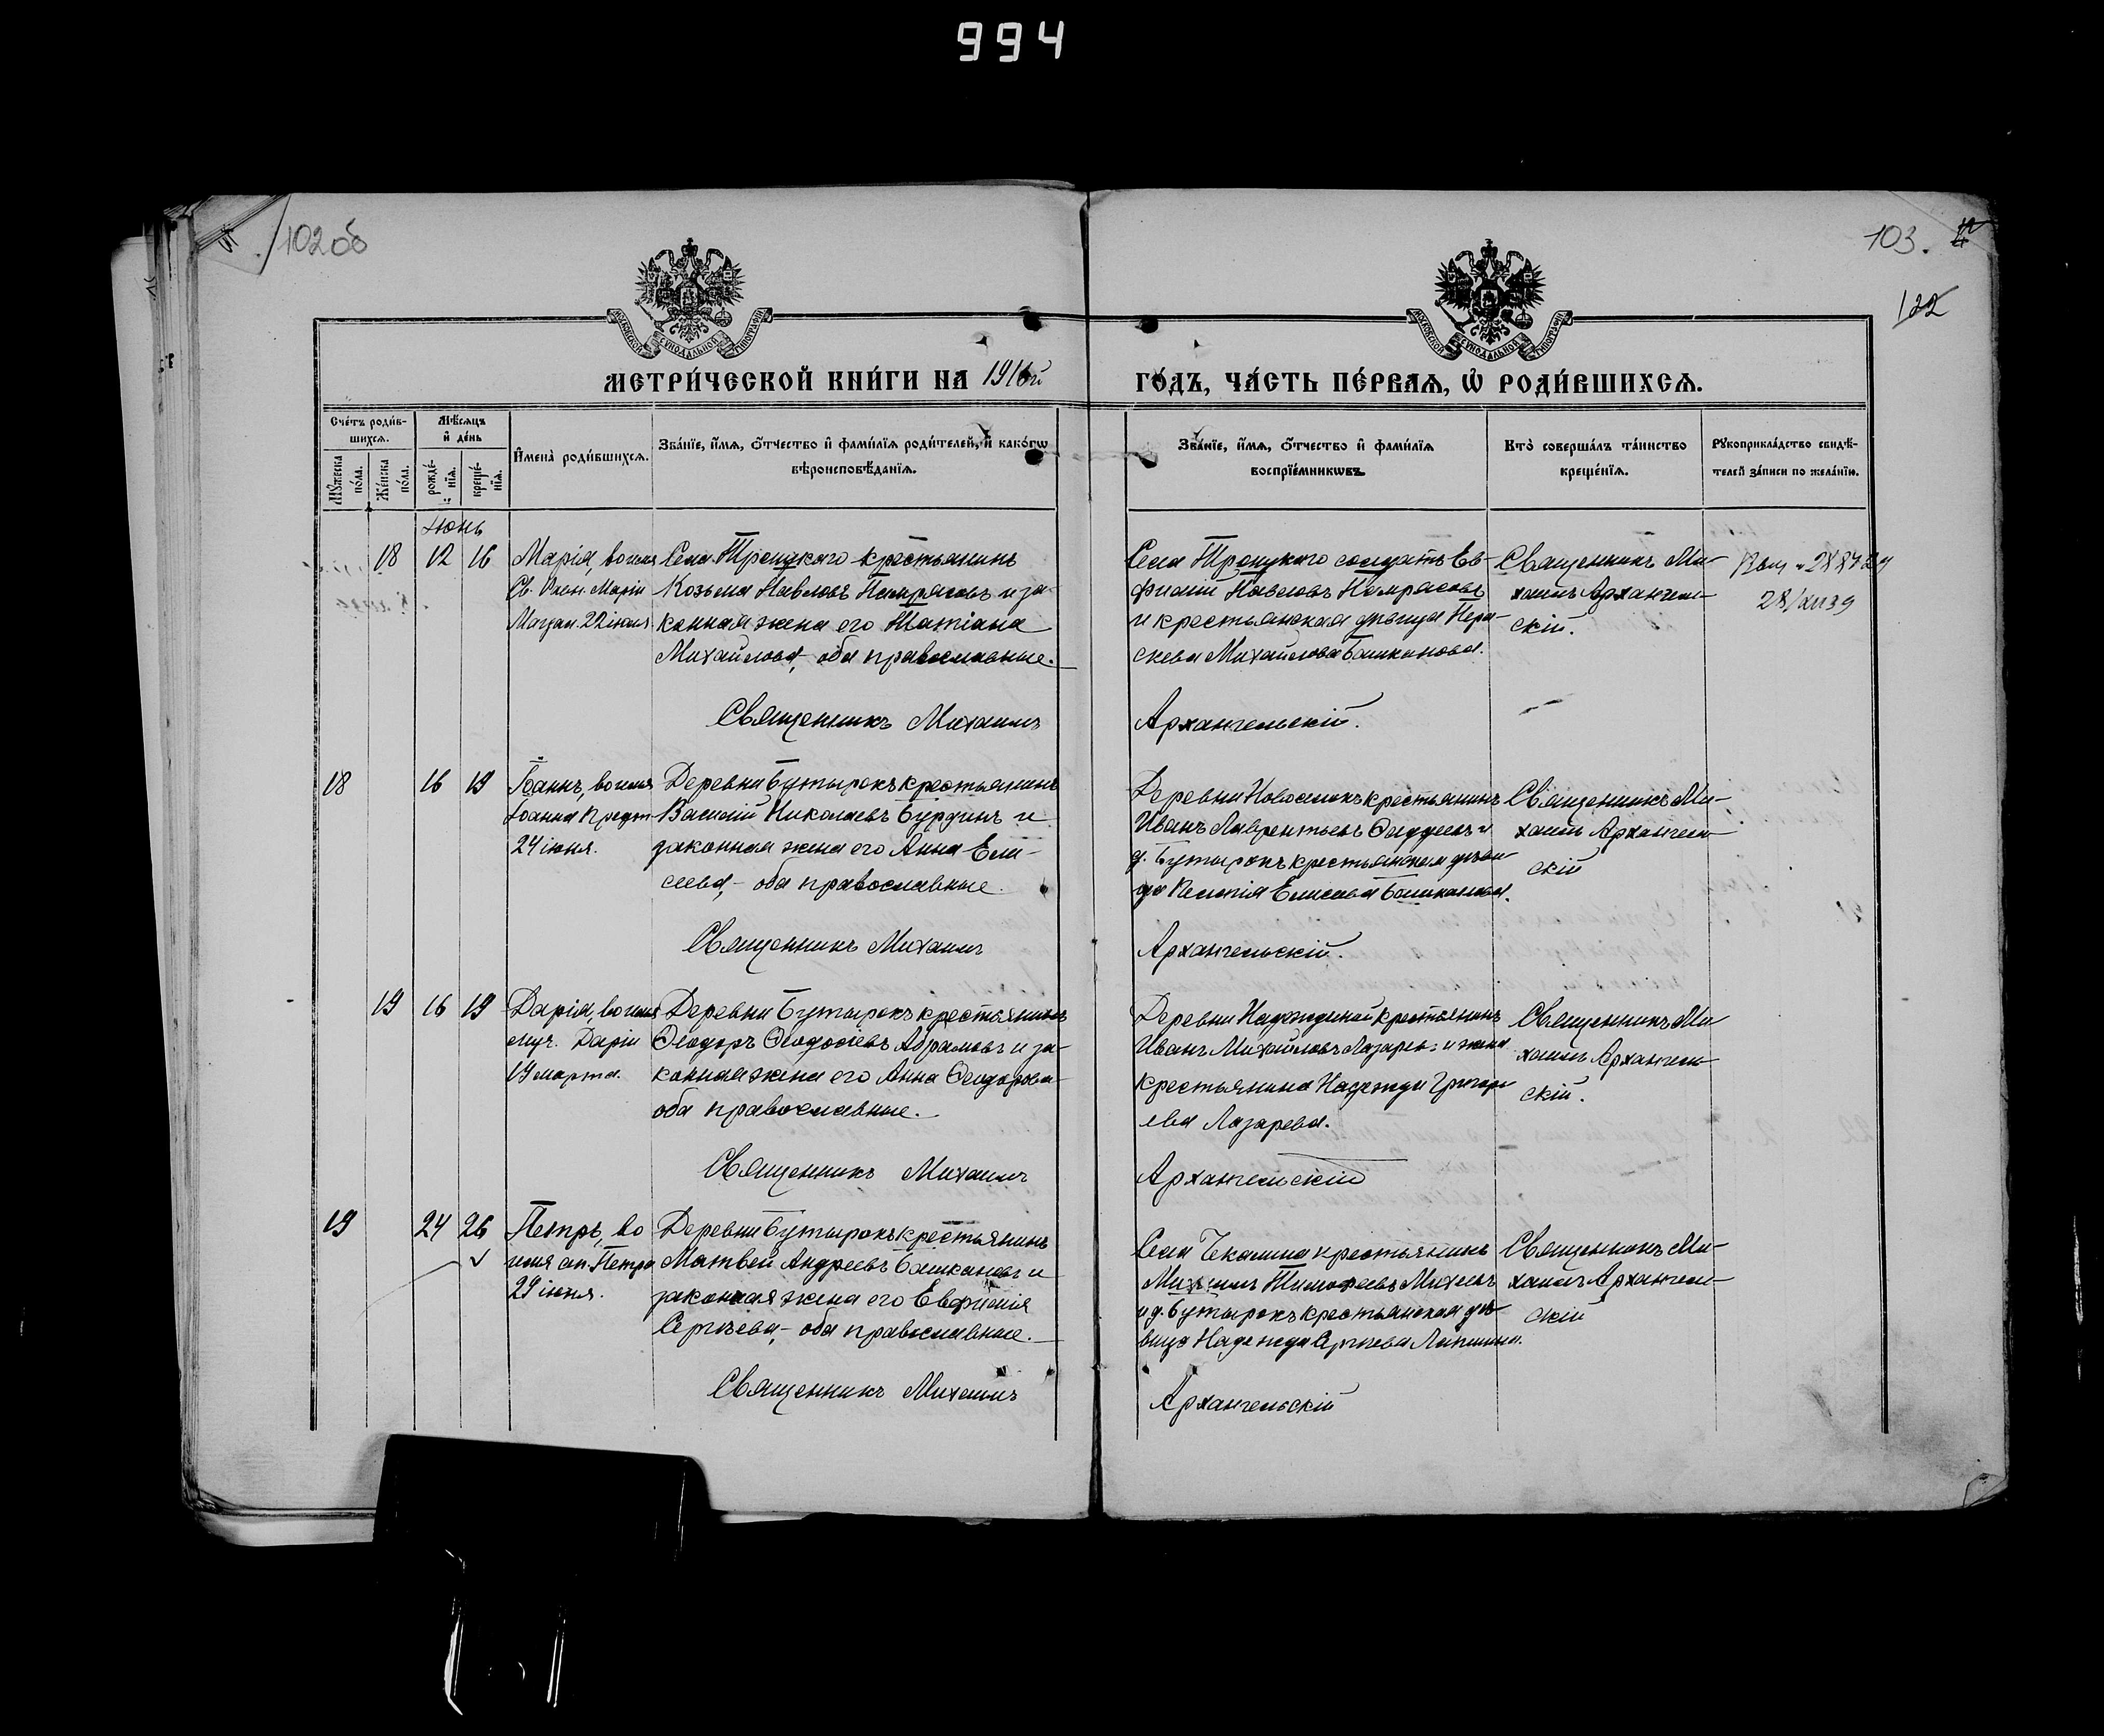 994
102об
103.
122
МЕТРИ́ЧЕСКОЙ КНИ́ГИ НА 1916й ГО́ДЪ, ЧА́СТЬ ПЕ́РВАѦ, Ѡ҆ РОДИ́ВШИХСѦ.
Сче́тъ роди́в-
шихсѧ.
Мѣ́сѧцъ
и҆ де́нь
Мꙋ́жеска
по́ла.
Же́нска
по́ла.
рожде́-
нїѧ.
креще́-
нїѧ.
И҆мена̀ роди́вшихсѧ.
Зва́нїе, и҆́мѧ, ѻ҆́тчество и҆ фами́лїѧ роди́телей, и҆ како́гѡ
вѣроисповѣ́данїѧ.
Зва́нїе, и҆́мѧ, ѻ҆́тчество и҆ фами́лїѧ
воспрїе́мникѡвъ.
Кто̀ соверша́лъ та́инство
креще́нїѧ.
Рꙋкоприкла́дство свидѣ́-
телей за́писи по жела́нїю.
Іюнь
18 12 16
Марія, во имя
Св. Равн. Маріи
Магдал. 22 іюля
Села Троицкаго крестьянинъ
Козьма Павловъ Панкрасовъ и за-
конная жена его Татіана
Михайлова, оба православные.
Села Троицкаго солдатъ Ев-
фимій Павловъ
и крестьянская дѣвица Пара-
скева Михайлова Башканова.
Священникъ Ми-
хаилъ Архангель-
скій.
28/XII39
Священникъ Михаилъ Архангельскій.
18 16 19
Іоаннъ, во имя
Іоанна Предт.
24 іюня.
Деревни Бутырокъ крестьянинъ
Василій Николаевъ Бурдинъ и
законная жена его Анна Ели-
сеева, - оба православные.
Деревни Новоселокъ крестьянинъ
Иванъ Лаврентьевъ Фаддеевъ и
д. Бутырокъ крестьянская дѣви-
ца Елисеева Башканова.
Священникъ Ми-
хаилъ Архангель-
скій
Священникъ Михаилъ Архангельскій.
19 16 19
Дарія, во имя
муч. Даріи
19 марта.
Деревни Бутырокъ крестьянинъ
Ѳеодоръ Ѳеодосіевъ Абрамовъ и за-
конная жена его Анна Ѳеодорова-
оба православные.
Деревни Надеждиной крестьянинъ
Иванъ Михайловъ Лазарев: и жена
крестьянина Надежда Григорь-
ева Лазарева.
Священникъ Ми-
хаилъ Архангель-
скій.
Священникъ Михаилъ Архангельскій
19 24 26
Петръ, во
имя ап. Петра
29 іюня.
Деревни Бутырокъ крестьянинъ
Матвей Андреевъ Башкановъ и
законная жена его Евфимія
Сергѣева, - оба православные.
Села Чекалина крестьянинъ
Михаилъ Тимофеевъ Михеевъ
и д. Бутырокъ крестьянская дѣ-
вица Надежда Сергѣева Лапшина.
Священникъ Ми-
хаилъ Архангель-
скій
Священникъ Михаилъ Архангельскій